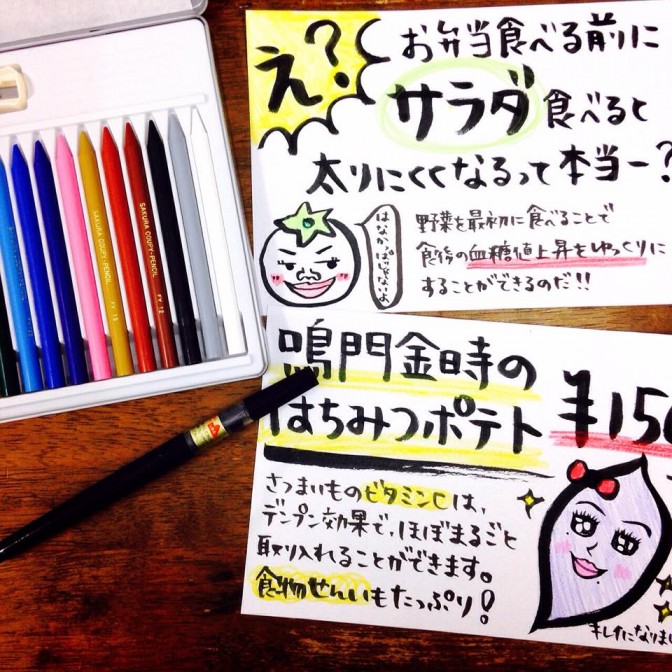 え?
お弁当食べる前に
サラダ食べると
太りにくくなるって本当ー?
はなかっぱじゃないよ
野菜を最初に食べることで
食後の血糖値上昇をゆっくりに
することができるのだ!!
鳴門金時の
はちみつポテト ¥150
さつまいものビタミンCは、
デンプン効果で、ほぼまるごと
取り入れることができます。
食物せんいもたっぷり!
キレイになりま
SAKURA COUPY-PENCIL
SAKURA COUPY-PENCIL